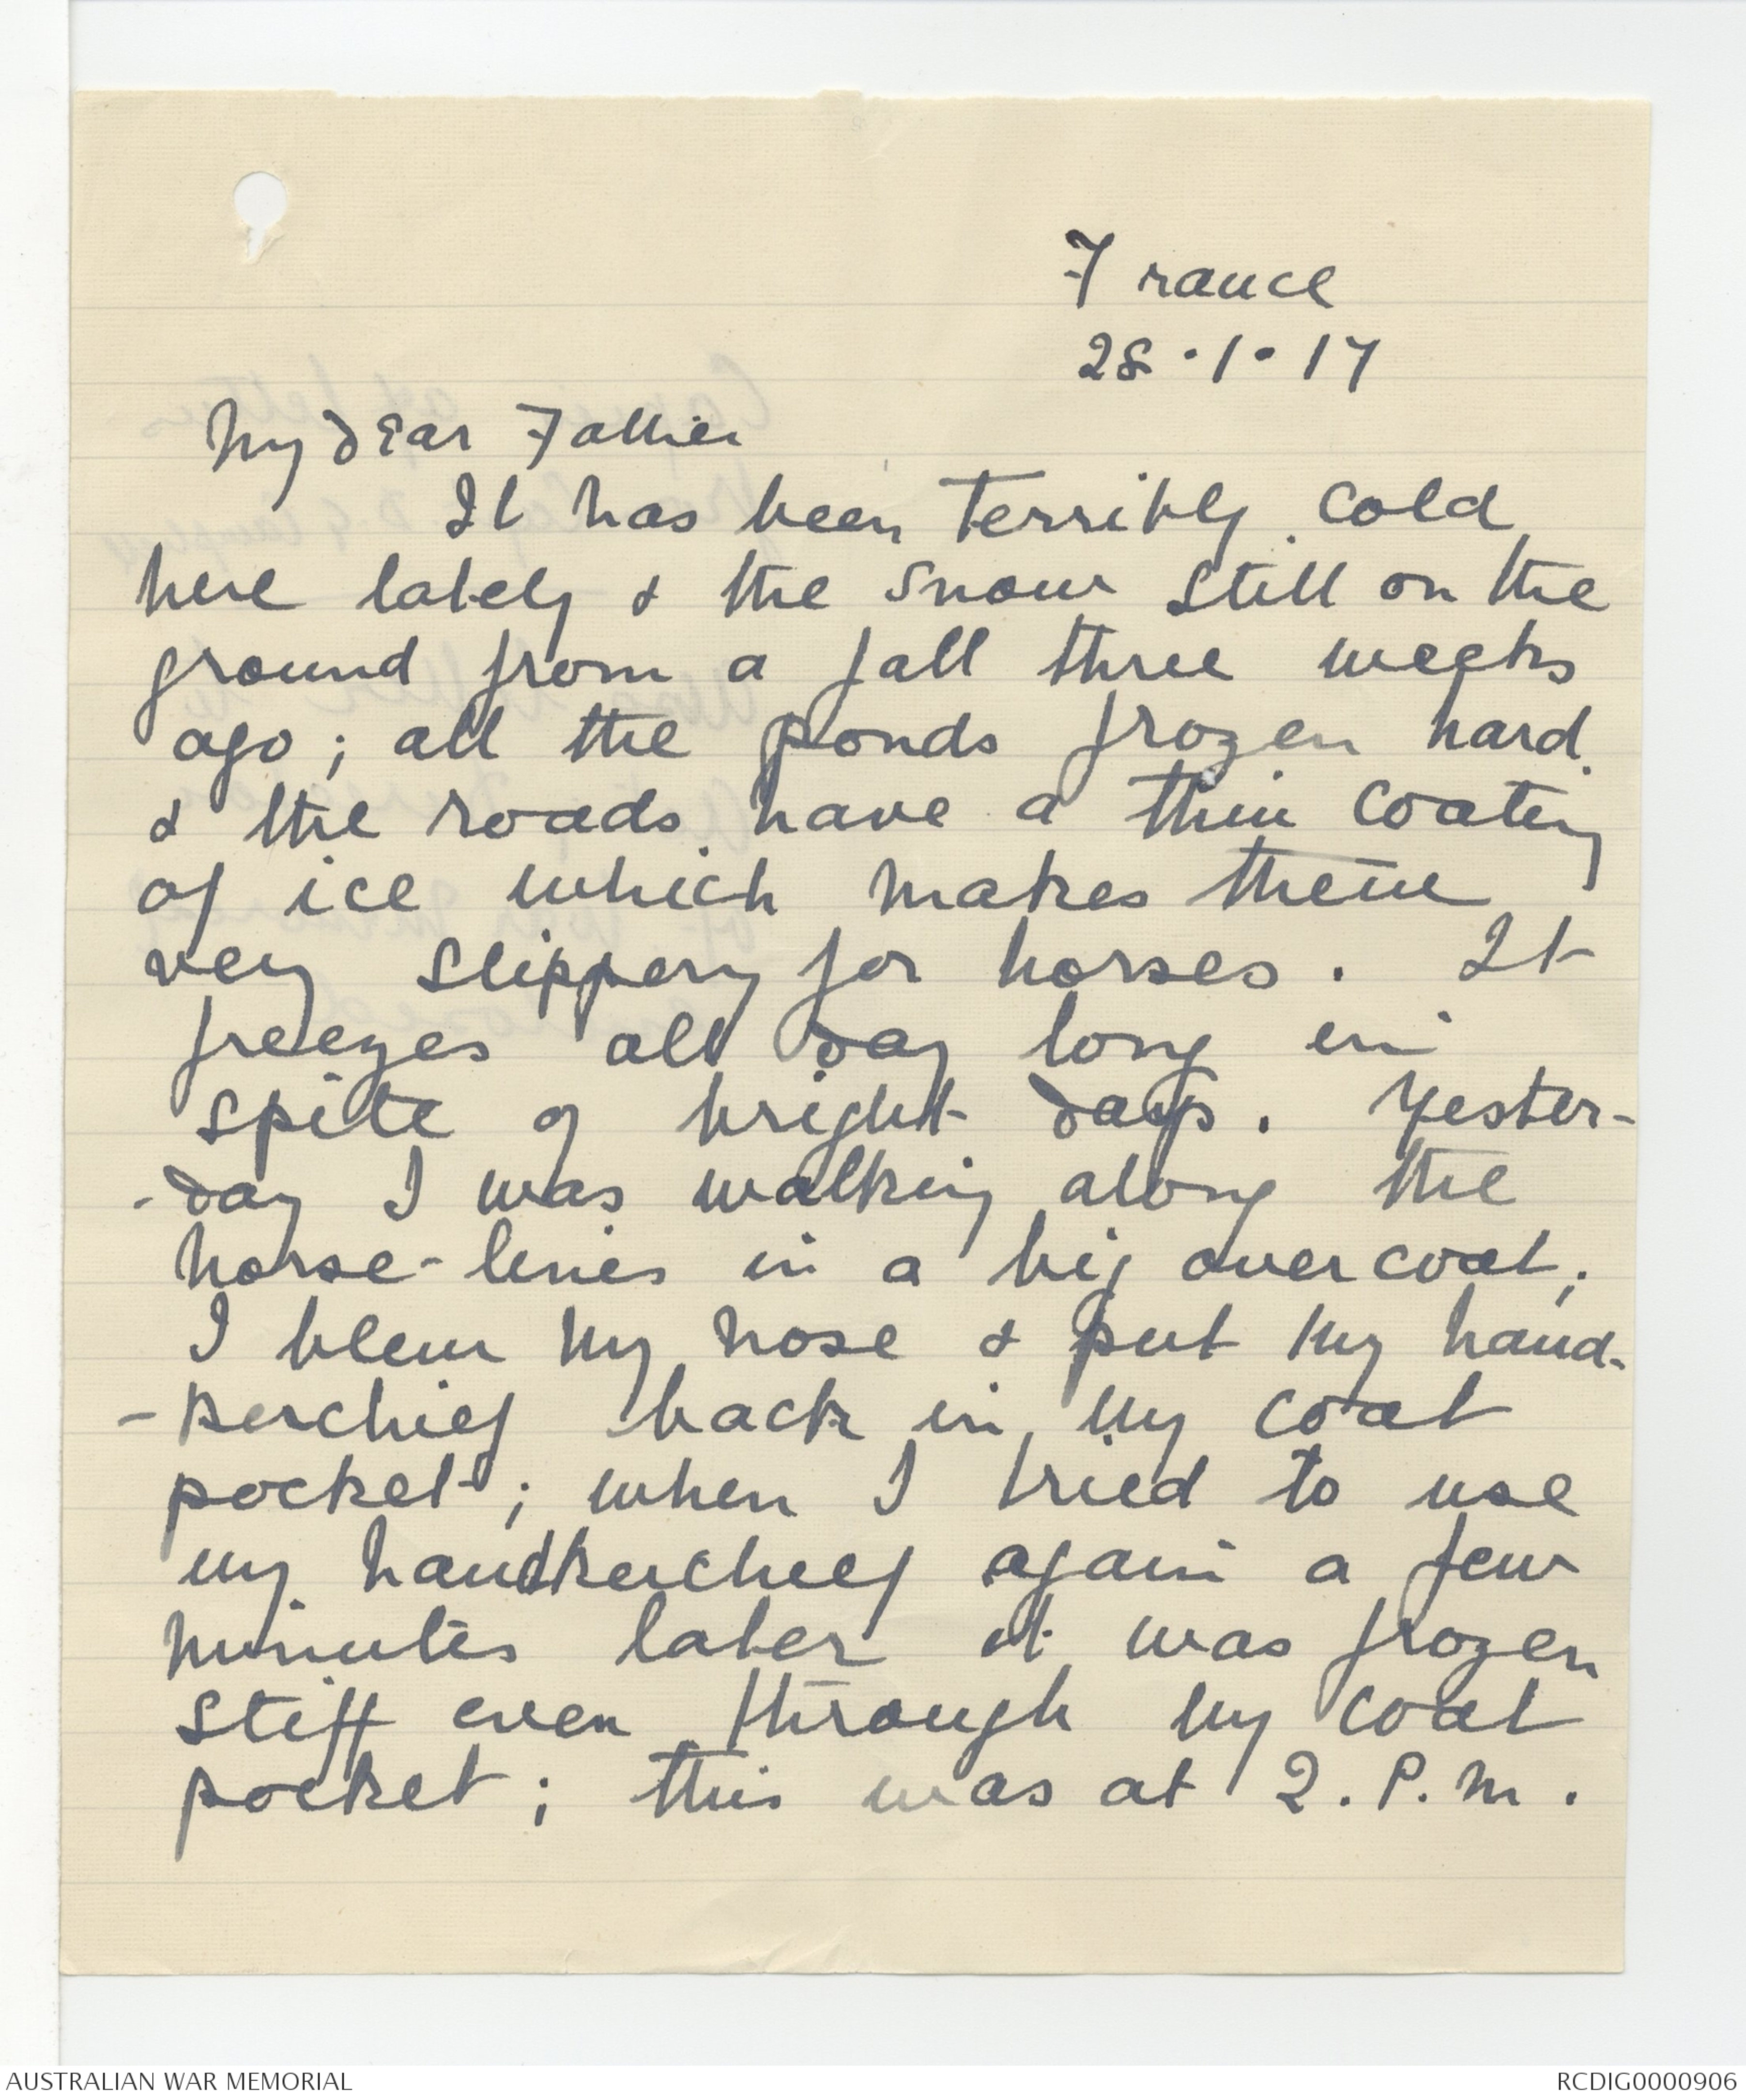 France
28.1.17
My dear Father
It has been terribly cold
here lately & the snow still on the
ground from a fall three weeks
ago; all the ponds frozen hard
& the roads have a thin coating
of ice which makes them
very slippery for horses. It
freezes all day long in
spite of bright days. Yester-
-day I was walking along the
horse-lines in a big overcoat;
I blew my nose & put my hand-
-kerchief back in my coat
pocket; when I tried to use
my handkerchief again a few
minutes later it was frozen
stiff even through my coat
pocket; this was at 2.P.m.
AUSTRALIAN WAR MEMORIAL
RCDIG0000906